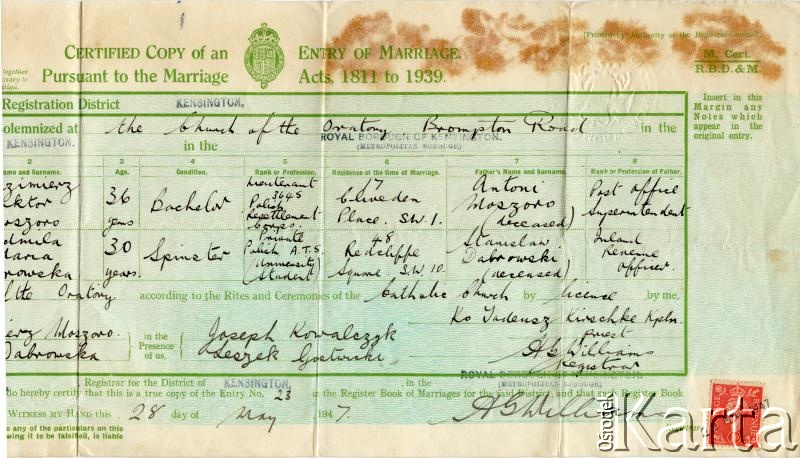 CERTIFIED COPY OF AN ENTRY OF MARRIAGE.
(Printed by Authority of the Registrar-General.)
PURSUANT TO THE MARRIAGE ACTS, 1811 TO 1939.
M. Cert.
R.B.D.&M.
Registration District KENSINGTON.
Insert in this
Margin any
Notes which
appear in the
original entry.
olemnized at the Church of the Oratory Brompton Road in the
KENSINGTON. in the ROYAL BOROUGH OF KENSINGTON.
(METROPOLITAN BOROUGH)
2 3 4 5 6 7 8
me and Surname. Age. Condition. Rank or Profession. Residence at the time of Marriage. Father's Name and Surname. Rank or Profession of Father.
zimierz
iktor
oszoro
36
years
Bachelor
Lieutenant
3645
Polish
Resettlement
Corps.
17
Cliveden
Place. S.W.1.
Antoni
Moszoro
(deceased)
Post Office
Superintendent
udmila
Maria
browska
30
years.
Spinster
Private
Polish A.T.S.
(University)
(Student)
48
Redcliffe
Square. S.W.10.
Stanislaw
Dabrowski
(deceased)
Inland
Revenue
Officer.
of the Oratory according to the Rites and Ceremonies of the Catholic Church by licence by me,
ierz Moszoro.
Dabrowska
in the
Presence
of us,
Joseph Kowalczyk
Leszek
Ks Tadeusz Kirschke
priest
A G Williams
Registrar
Registrar for the District of KENSINGTON, in the ROYAL BOROUGH OF KENSINGTON.
(METROPOLITAN BOROUGH)
do hereby certify that this is a true copy of the Entry No. 23 in the Register Book of Marriages for the said District, and that such Register Book
WITNESS MY HAND THIS 28 day of May 1947. A G Williams
Registrar
s any of the particulars on this
wing it to be falsified, is liable
ośrodek
Karta